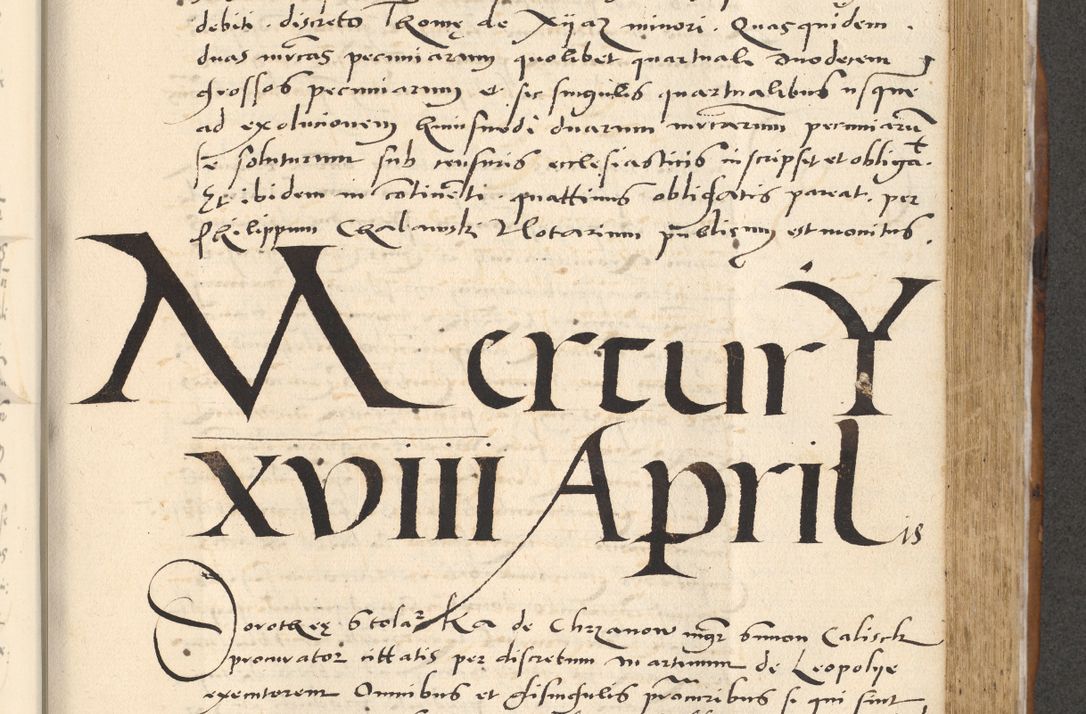 debiti. discreto Thomę de Xyaz minori. Quas quidem
duas mrcas pecuniarum quolibet quartuali duodecem
grossos pecuniarum et sic singulis quartualibus usque
ad exolucionem huiusmodi duarum mrcarum pecuniarū
se soluturum sub censuris ecclesiasticis inscripsit et obligat.
Et ibidem in cōtinēti. quattinus obligatis pareat. per
Philippum Chabawski Notarium publicum est monitus.
MercurY
xviii Aprilis
Dorotheę Stolarzka de Chrzanow mgr Simon Calisch
procurator cittatis per discretum martinum de Leopolye
executorem Omnibus et singulis prōcuribus si qui sint